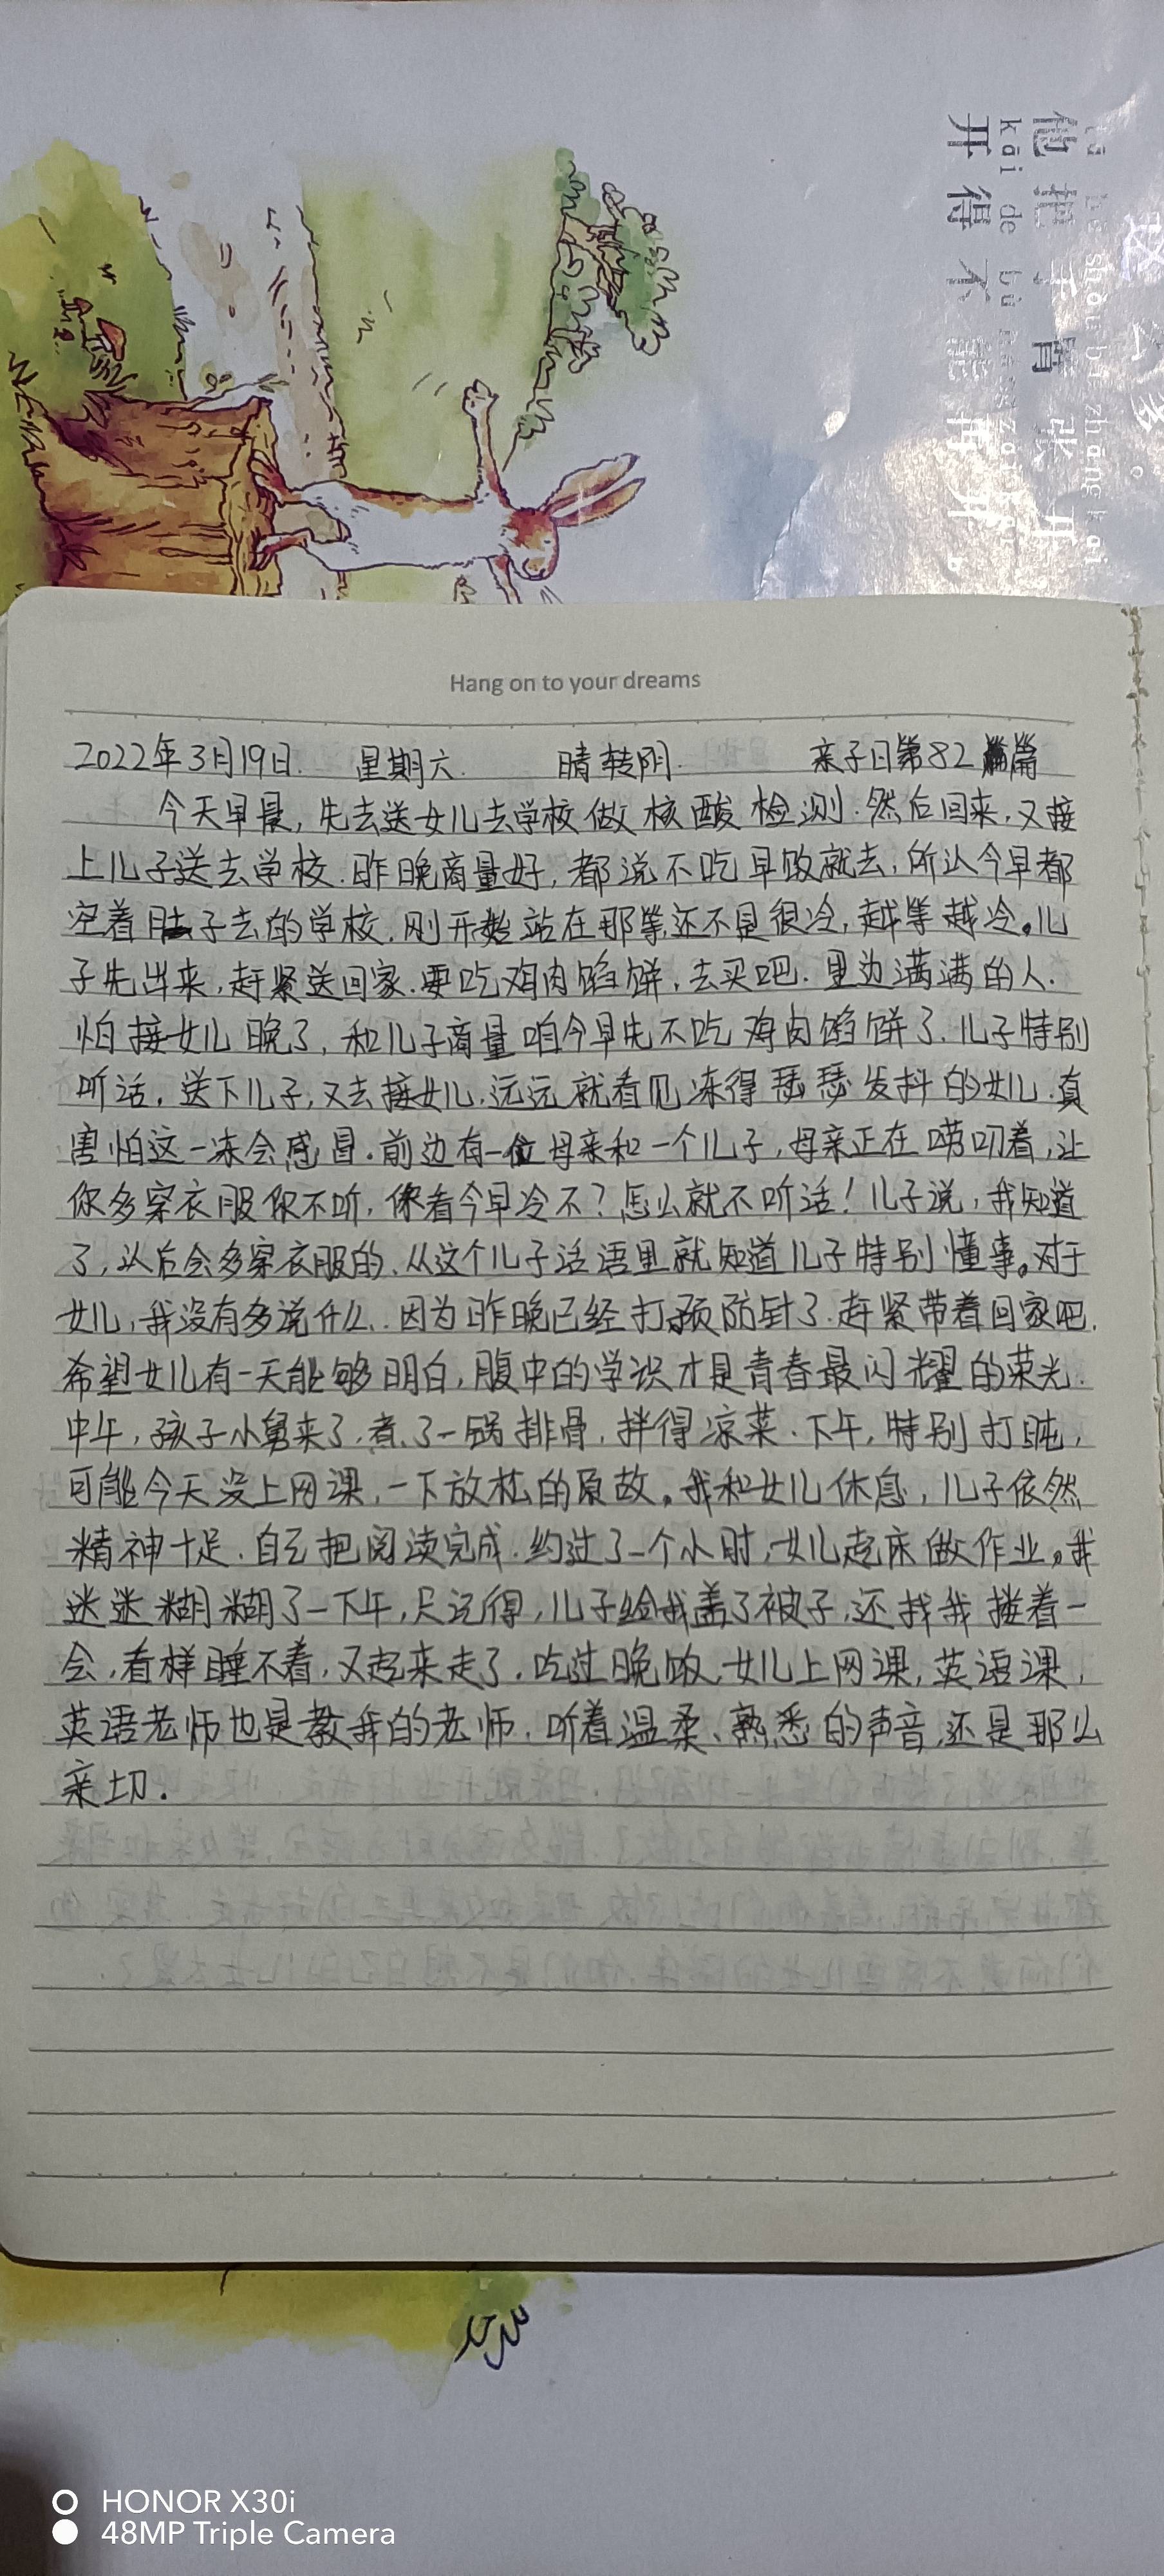 他把手臂张开
开得不能再开。
Hang on to your dreams
2022年3月19日. 星期六. 晴转阴. 亲子日第82篇
今天早晨,先去送女儿去学校做核酸检测.然后回来,又接
上儿子送去学校.昨晚商量好,都说不吃早饭就去,所以今早都
空着肚子去的学校.刚开始站在那等还不是很冷,越等越冷。儿
子先出来,赶紧送回家.要吃鸡肉馅饼,去买吧.里边满满的人.
怕接女儿晚了,和儿子商量咱今早先不吃鸡肉馅饼了.儿子特别
听话.送下儿子,又去接女儿.远远就看见冻得瑟瑟发抖的女儿.真
害怕这一冻会感冒.前边有一位母亲和一个儿子,母亲正在唠叨着,让
你多穿衣服你不听,你看今早冷不?怎么就不听话!儿子说,我知道
了,以后会多穿衣服的.从这个儿子话语里就知道儿子特别懂事。对于
女儿,我没有多说什么.因为昨晚已经打预防针了.赶紧带着回家吧.
希望女儿有一天能够明白,腹中的学识才是青春最闪耀的荣光.
中午,孩子小舅来了.煮了一锅排骨,拌得凉菜.下午,特别打盹,
可能今天没上网课,一下放松的原故。我和女儿休息,儿子依然
精神十足.自己把阅读完成.约过了一个小时,女儿起床做作业。我
迷迷糊糊了一下午,只记得,儿子给我盖了被子,还找我搂着一
会,看样睡不着,又起来走了.吃过晚饭,女儿上网课,英语课,
英语老师也是教我的老师.听着温柔、熟悉的声音,还是那么
亲切.
HONOR X30i
48MP Triple Camera